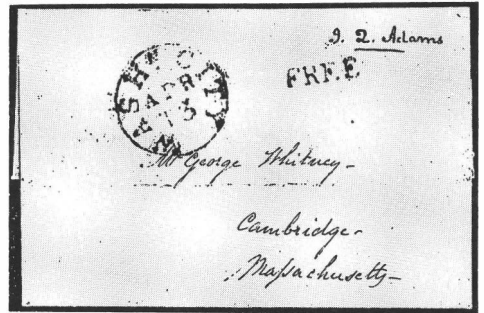 J. Q. Adams
FREE
WASHN. CITY
APR
13
Mr George Whitney-
Cambridge-
Massachusetts-